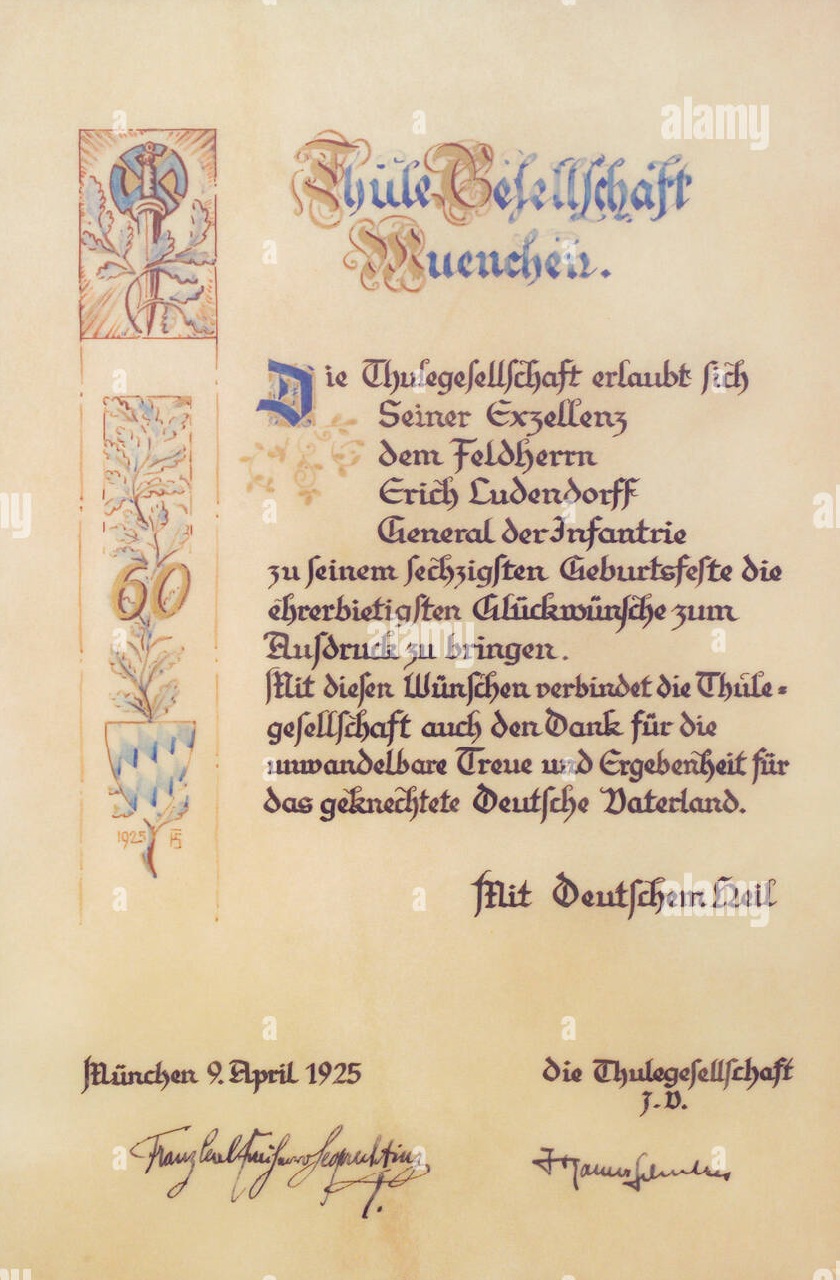 alamy
Thule Gesellschaft
Muenchen.
Die Thulegesellschaft erlaubt sich
Seiner Exzellenz
dem Feldherrn
Erich Ludendorff
General der Infantrie
zu seinem sechzigsten Geburtsfeste die
ehrerbietigsten Glückwünsche zum
Ausdruck zu bringen.
Mit diesen Wünschen verbindet die Thule=
gesellschaft auch den Dank für die
unwandelbare Treue und Ergebenheit für
das geknechtete Deutsche Vaterland.
60
1925
Mit Deutschem Heil
München 9. April 1925
die Thulegesellschaft
J.V.